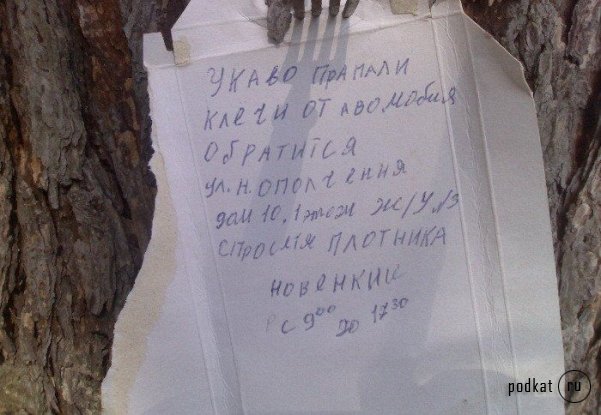 УКАВО ПРАПАЛИ
КЛЕЧИ ОТ АВОМОБИЯ
ОБРАТИТСЯ
УЛ. Н. ОПОЛЧЕННЯ
ДОМ 10, 1 этож Ж/У №3
СПРОСИТЯ ПЛОТНИКА
НОВЕНКИИ
С 9⁰⁰ ДО 17³⁰
podkat ru